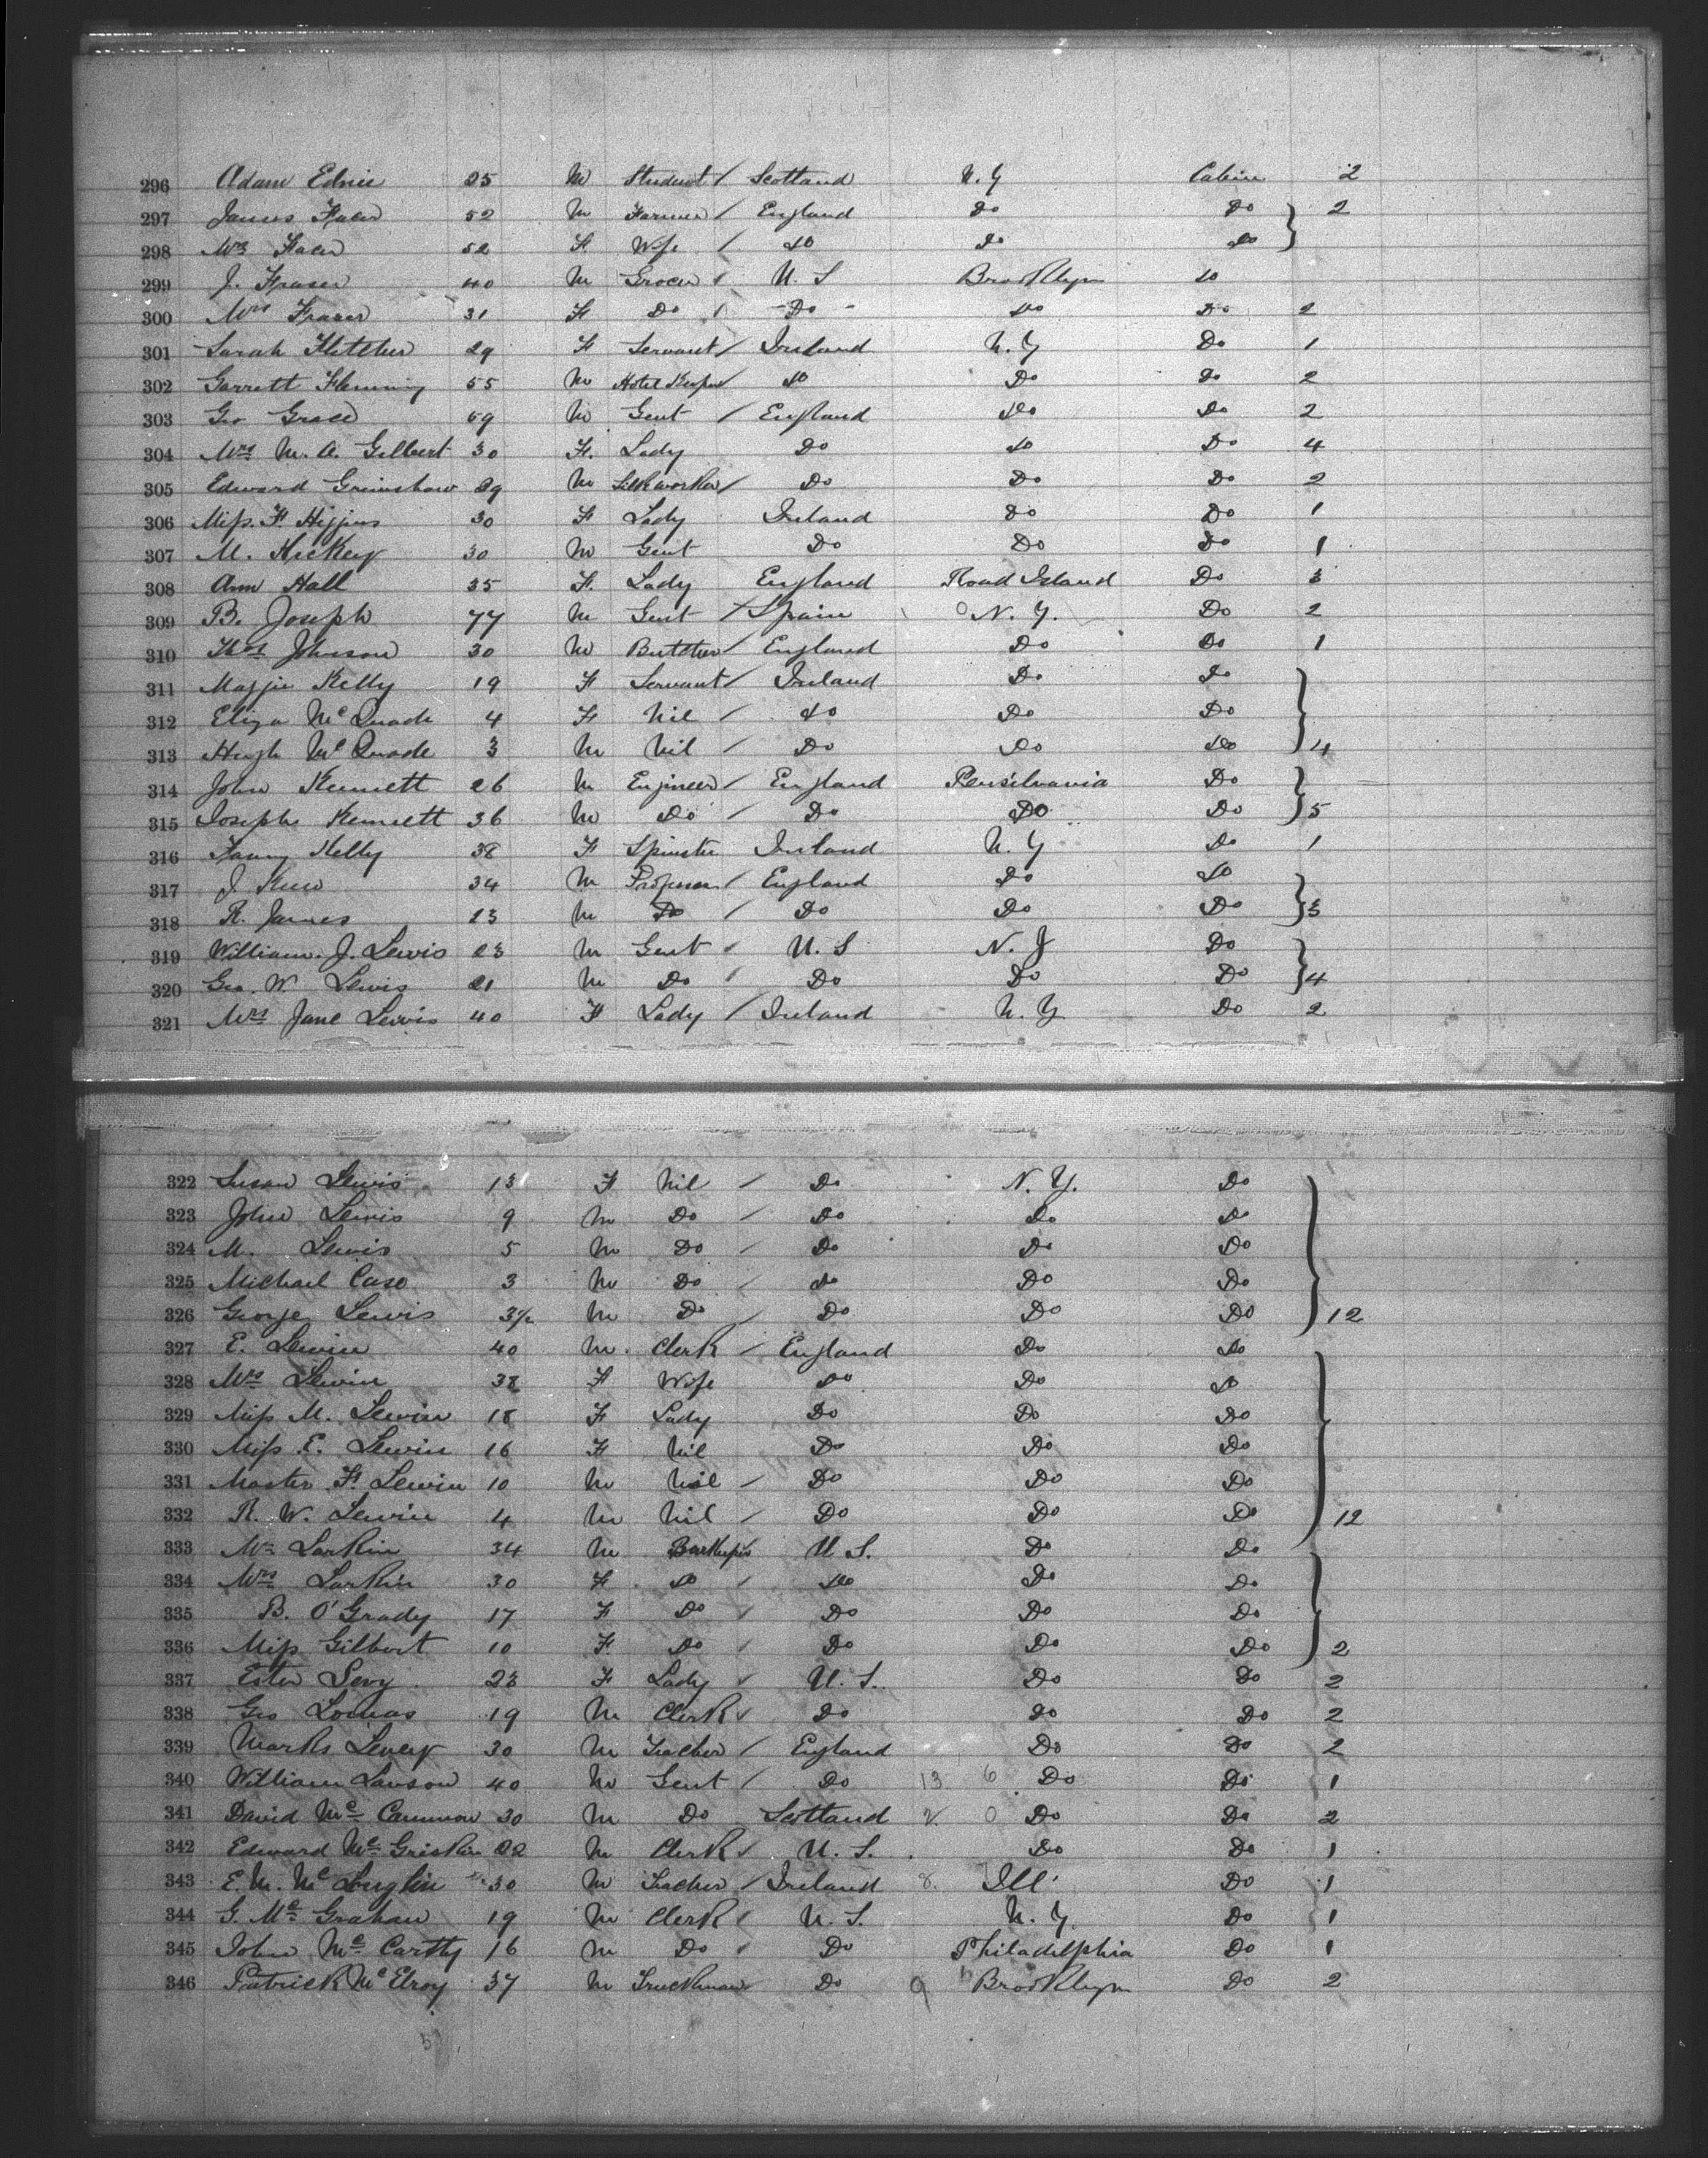 296 Adam Ednie 25 M Student / Scotland N.Y Cabin 2
297 James Faer 52 M Farmer / England Do Do } 2
298 Mrs Faer 52 F Wife / Do Do Do
299 J. Fraser 40 M Grocer / U.S Brooklyn Do
300 Mrs Fraser 31 F Do / - Do - Do Do 2
301 Sarah Fletcher 29 F Servant / Ireland N.Y Do 1
302 Garrett Fleming 55 M Hotel Keeper / Do Do Do 2
303 Geo Grace 59 M Gent / England Do Do 2
304 Mrs M. A. Gilbert 30 F. Lady Do Do Do 4
305 Edward Grimshaw 29 M Silkworker / Do Do Do 2
306 Miss. F. Higgins 30 F Lady Ireland Do Do 1
307 M. Hickey 30 M Gent Do Do Do 1
308 Ann Hall 35 F. Lady England Road Island Do 3
309 B. Joseph 77 M Gent / Spain N.Y. Do 2
310 Thos Johnson 30 M Butcher / England Do Do 1
311 Maggie Kelly 19 F Servant / Ireland Do Do
312 Eliza McQuade 4 F Nil / Do Do Do
313 Hugh McQuade 3 M Nil / Do Do Do } 4
314 John Kennett 26 M Engineer / England Pensilvania Do
315 Joseph Kennett 36 M Do / Do Do Do } 5
316 Fanny Kelly 38 F Spinster Ireland N.Y Do 1
317 J. 34 M Professor / England Do Do
318 R. James 23 M Do / Do Do Do } 3
319 William. J. Lewis 23 M Gent / U.S N.J Do
320 Geo. W. Lewis 21 M Do / Do Do Do } 4
321 Mrs Jane Lewis 40 F Lady / Ireland N.Y. Do 2
322 Susan Lewis 13 F Nil / Do N.Y. Do
323 John Lewis 9 M Do / Do Do Do
324 M. Lewis 5 M Do / Do Do Do
325 Michael Case 3 M Do / Do Do Do
326 George Lewis M Do / Do Do Do } 12
327 E. Lewin 40 M. Clerk / England Do Do
328 Mrs Lewin 38 F Wife Do Do Do
329 Miss M. Lewin 18 F Lady Do Do Do
330 Miss E. Lewin 16 F Nil Do Do Do
331 Master F. Lewin 10 M Nil / Do Do Do
332 R. W. Lewin 4 M Nil / Do Do Do } 12
333 Mr Larkin 34 M U.S. Do Do
334 Mrs Larkin 30 F. Do / Do Do Do
335 B. O'Grady 17 F Do / Do Do Do
336 Miss Gilbert 10 F. Do / Do Do Do } 2
337 Ester Levy 23 F Lady / U.S. Do Do 2
338 Geo Lomas 19 M Clerk / Do Do Do 2
339 Marks Levey 30 M Teacher / England Do Do 2
340 William Lawson 40 M Gent / Do 13 6 Do Do 1
341 David Mc Cammon 30 M Do Scotland 2 0 Do Do 2
342 Edward Mc Griskin 22 M Clerk / U.S. Do Do 1
343 E. M. Mc Luglin 30 M Teacher / Ireland 8. Ill. Do 1
344 G. Mc Graham 19 M Clerk / U.S. N.Y. Do 1
345 John Mc Carthy 16 M Do / Do Philadelphia Do 1
346 Patrick McElroy 37 M Truckman Do 9 Brooklyn Do 2